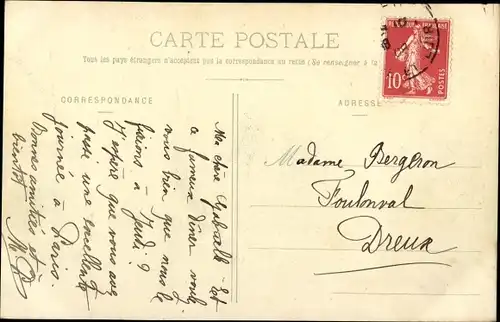 CARTE POSTALE
Tous les pays étrangers n'acceptent pas la correspondance au recto (Se renseigner à la
CORRESPONDANCE
ADRESSE
10c
POSTES
Ma chère Gabrielle Est
ce fameux dîner voulez
vous bien que nous le
fixions à Jeudi 9
J'espère que vous avez
passé une excellente
journée à Paris.
Bonnes amitiés et à
bientôt
Madame Bergeron
Foulonval
Dreux